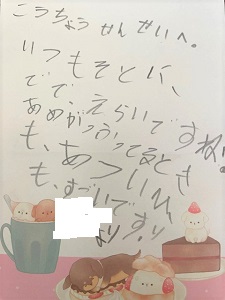 こうちょうせんせいへ。
いつもそとに、
でて、えらいですね!
あめがふってるとき
も、あついひ
も、すごいです!
より